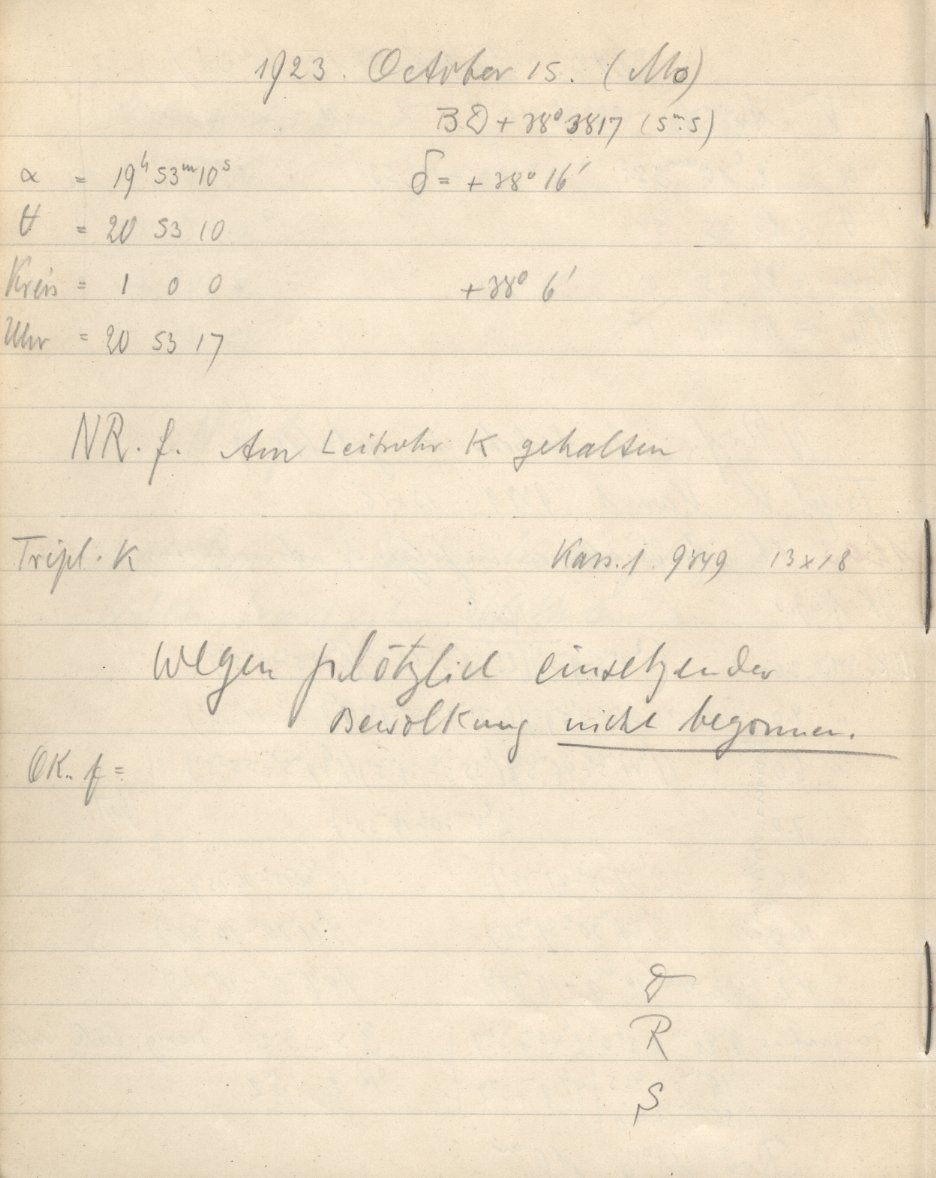 1923. October 15. (Mo)
BD + 38° 3817 (5ᵐ.5)
α = 19ʰ 53ᵐ 10ˢ δ = + 38° 16′
θ = 20 53 10
Kreis = 1 0 0 +38° 6′
Uhr = 20 53 17
NR. f. Am Leitrohr K gehalten
Tripl. K Kass. 1. 9349 13 x 18
Wegen plötzlich einsetzender
Bewölkung nicht begonnen.
OK. f =
D
R
S